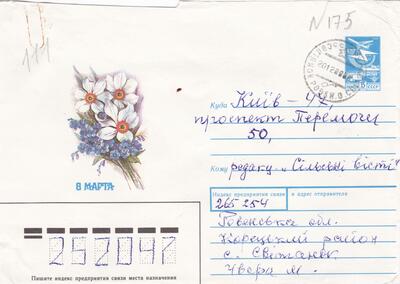 N 175
111
Куда Київ - 47,
проспект Перемоги
50,
Кому редакц. „Сільські вісті"
8 МАРТА
Индекс предприятия связи и адрес отправителя
265254
Ровенська обл.
Корецький район
с. Світанок
252047
Пишите индекс предприятия связи места назначения